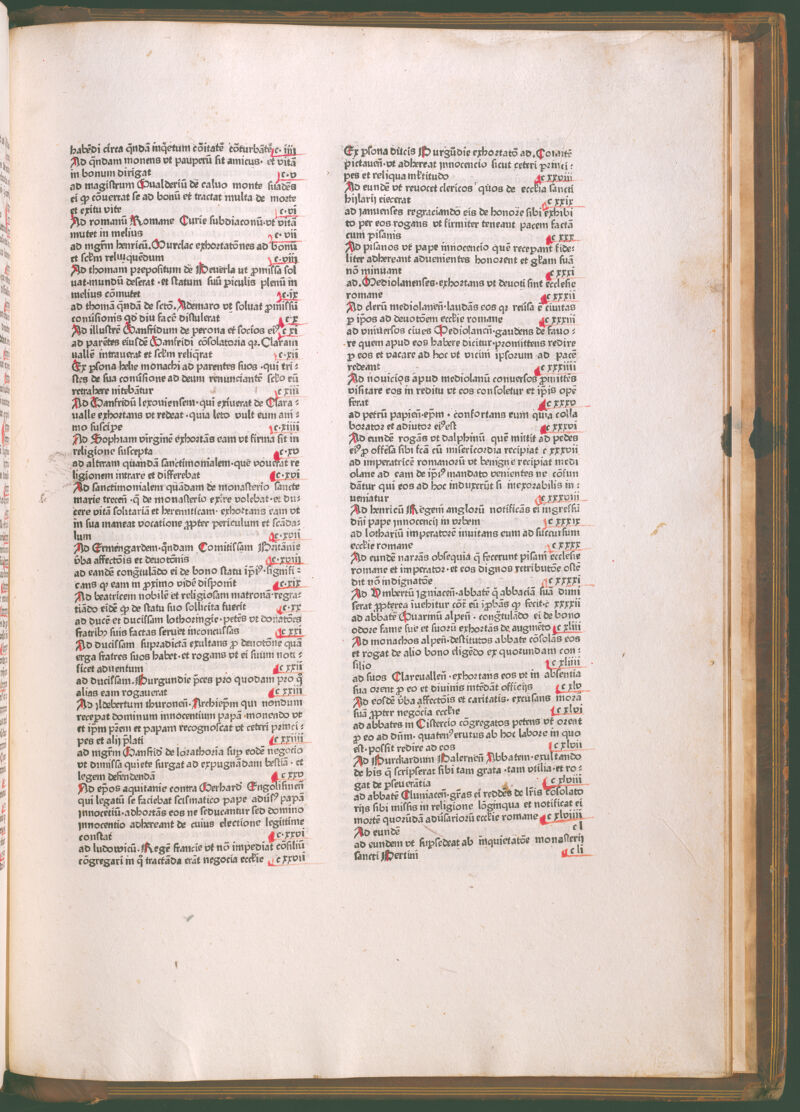 habēdi circa qndā inqetum cōitatē cōturbātē c· iiii
Ad qndam monens vt pauperū sit amicus· et vitā
in bonum dirigat c·v
ad magistrum Gualderiū de caluo monte suadēs
ei ꝙ cōuertat se ad bonū et tractat multa de morte
et exitu vite c·vi
Ad romanū Romane Curie subdiaconū·vt vitā
mutet in melius c· vii
ad mgrm henricū·Murdac exhortatōnes ad bonū
et sclm relinquēdum c·viii
Ad thomam prepositum de Beuerla ut ꝓmissa sol
uat·mundū deserat ·et statum suū ꝑiculis plenū in
melius cōmutet c·ix
ad thomā qndā de sctō· Ademaro vt soluat ꝓmissū
conūsionis qd diu facē distulerat c x
Ad illustrē Gaufridum de perona et socios ei⁹ c xi
ad parētes eiusdē Gaufridi cōsolatoria qr Claram
uallē intrauerat et sclm reliq̄rat c·xii
Ex ꝑsona helie monachi ad parentes suos · qui tri⸗
stes de sua conūsione ad deum renunciantē sclo eū
retrahere nitebātur c xiii
Ad Gaufridū lexouiensem· qui exiuerat de Clara⸗
ualle exhortans vt redeat · quia leto vult eum ani⸗
mo suscipe c·xiiii
Ad Sophiam virginē exhortās eam vt firma sit in
religione suscepta c·xv
ad alteram quandā sanctimonialem· que vouerat re
ligionem intrare et differebat c·xvi
Ad sanctimonialem quādam de monasterio sancte
marie trecen̄ ·q̄ de monasterio exire volebat·et du⸗
cere vitā solitariā et heremiticam· exhortans eam vt
in sua maneat vocatione ꝓpter periculum et scāda⸗
lum c·xvii
Ad Ermengardem·qndam Comitissam Britanie
v̄ba affectōis et deuotōnis c·xviii
ad eandē congr̄ulādo ei de bono statu ip̄i⁹·signifi⸗
cans ꝙ eam in ꝓximo vidē disponit c·xix
Ad beatricem nobilē et religiosam matronā·regra⸗
tiādo eidē ꝙ de statu suo sollicita fuerit c·xx
ad ducē et ducissam lothoringie·petēs vt donatōes
fratrib⁹ suis factas seruet inconcussas c xxi
Ad ducissam supradictā exultans ꝓ deuotōne quā
erga fratres suos habet·et rogans vt ei suum noti⸗
ficet aduentum c xxii
ad ducissam·Burgundie p̄ces pro quodam pro q̄
alias eam rogauerat c xxiii
Ad yldebertum thuronen̄· Archiepm qui nondum
receperat dominum innocentium papā·monendo vt
et ip̄m pr̄em et papam recognoscat vt ceteri princi⸗
pes et alij p̄lati c·xxiiii
ad mgr̄m Gaufridū de lorathoria sup̄ eodē negotio
vt dimissa quiete surgat ad expugnādam bestiā· et
legem defendendā c xxv
Ad ep̄os aquitanie contra Gerhardū Engolismen̄
qui legatū se faciebat scismatico pape adūs⁹ papā
innocētiū·adhortās eos ne seducantur sed domino
innocentio adhereant de cuius electione legittime
constat c·xxvi
ad ludowicū· Regē francie vt nō impediat cōsiliū
cōgregari in q̄ tractāda erāt negocia ecclie c xxvii
Ex ꝑsona ducis Burgūdie exhortatō ad· Comitē
pictauen̄·vt adhereat innocencio sicut ceteri princi⸗
pes et reliqua ml̄titudo c xxviii
Ad eundē vt reuocet clericos q̄uos de ecclia sancti
hijlarij eiecerat c xxix
ad januenses regraciandō eis de honore sibi exhibi
to per eos rogans vt firmiter teneant pacem factā
cum pisanis c xxx
Ad pisanos vt pape innocencio quē receperant fide⸗
liter adhereant aduenientes honorent et glam suā
nō minuant c xxxi
ad·Mediolanenses·exhortans vt deuoti sint ecclesie
romane c xxxii
Ad clerū mediolanen̄·laudās eos qr reūsa ē ciuitas
ꝓ ip̄os ad deuotōem ecclie romane c xxxiii
ad vniuersos ciues Mediolanen̄·gaudens de fauo⸗
re quem apud eos habere dicitur·promittens redire
ꝓ eos et vacare ad hoc vt vicini ipsorum ad pacē
redeant c xxxiiii
Ad nouicios apud mediolanū conuersos ꝓmittēs
visitare eos in reditu vt eos consoletur et ip̄is opē
ferat c xxxv
ad petrū papien̄·ep̄m · confortans eum quia colla
borator et adiutor ei⁹ est c xxxvi
Ad eundē rogās vt dalphinū quē mittit ad pedes
ei⁹ ꝓ offēsa sibi fcā cū misericordia recipiat c xxxvii
ad imperatricē romanorū vt benigne recipiat medi
olane ad eam de ip̄i⁹ mandato venientes ne cōfun
dātur qui eos ad hoc induxerūt si inexorabilis in⸗
ueniatur c xxxviii
ad henricū Regem anglorū notificās ei ingressū
dn̄i pape innocencij in vrbem c xxxix
ad lotharium imperatorē inuitans eum ad succursum
ecclie romane c xxxx
Ad eundē narrās obsequia q̄ fecerunt pisani ecclesie
romane et imperator·et eos dignos retributōe ostē
dit nō indignatōe c xxxxi
Ad Vmbertū jgniacen̄·abbatē q̄ abbaciā suā dimi
serat ꝓpterea iuehitur cōt eū ip̄bās ꝙ fecit·c xxxxii
ad abbatē Guarinū alpen̄· congr̄ulādo ei de bono
odore fame sue et suorū exhortās de augmēto c xliii
Ad monachos alpen̄·destitutos abbate cōsolās eos
et rogat de alio bono eligēdo ex quotundam con⸗
silio c xliiii
ad suos Clareuallen̄·exhortans eos vt in absentia
sua orent ꝓ eo et diuinis intēdāt officijs c xlv
Ad eosdē v̄ba affectōis et caritatis· excusans morā
suā ꝓpter negocia ecclie c xlvi
ad abbates in Cistercio cōgregatos petens vt orent
ꝓ eo ad dn̄m·quaten⁹ erutus ab hoc labore in quo
est·possit redire ad eos c xlvii
Ad Burchardum Balernen̄ Abbatem·exultando
de his q̄ scripserat sibi tam grata ·tam vtilia·et ro⸗
gat de ꝑseuerātia c xlviii
ad abbatē Cluniacen̄·gr̄as ei reddēs de lr̄is cōsolato
rijs sibi missis in religione lōginqua et notificat ei
mortē quorūdā adūsariorū ecclie romane c xlviiii
Ad eundē c l
ad eundem vt supsedeat ab inquietatōe monasterij
sancti Bertini c li